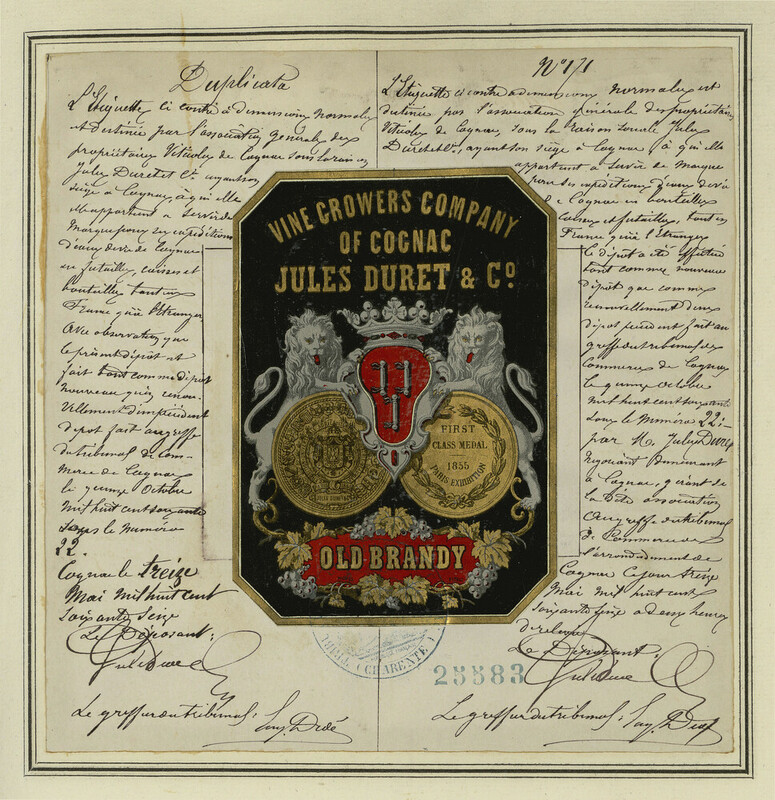 Duplicata
L'Etiquette ci contre à dimensions normales
et destinée par l'association générale des
propriétaires Viticoles de Cognac sous la raison
Jules Duret et Cie ayant son
siège à Cognac, à qui elle
appartient a Servir de
Marque pour ses expéditions
d'eaux de vie de Cognac
en futailles, caisses et
bouteilles tant en
France qu'à l'étranger.
Avec observation que
le présent dépôt est
fait tant comme dépôt
nouveau qu'en renou-
vellement d'un précédent
dépôt fait au greffe
du tribunal de Com-
merce de Cognac
le quinze Octobre
mil huit cent soixante
sous le Numéro
22.
Cognac le treize
Mai mil huit cent
soixante seize
Le Déposant:
Jules Duret
Le greffier du tribunal:
N° 171
L'Etiquette ci contre a dimensions normales est
destinée par l'association générale des propriétaires
Viticoles de Cognac, sous la Raison sociale Jules
Duret et Cie, ayant son siège à Cognac, à qui elle
appartient à servir de Marque
pour ses expéditions d'eaux de vie
de Cognac en bouteilles
caisses et futailles, tant en
France qu'à l'étranger
Ce dépôt a été effectué
tant comme nouveau
dépôt que comme
renouvellement d'un
dépôt précédent fait au
greffe du tribunal de
commerce de Cognac
le quinze octobre
mil huit cent soixante
sous le Numéro 22:-
par M. Jules Duret
Négociant demeurant
à Cognac, gérant de
la dite association
Au greffe du tribunal
de Commerce de
l'arrondissement de
Cognac Ce jour treize
Mai mil huit cent
soixante seize a deux heures
de relevée
Le Déposant:
Jules Duret
Le greffier du tribunal:
VINE GROWERS COMPANY
OF COGNAC
JULES DURET & Co.
FIRST
CLASS MEDAL
1855
PARIS EXHIBITION
OLD BRANDY
(CHARENTE)
25583